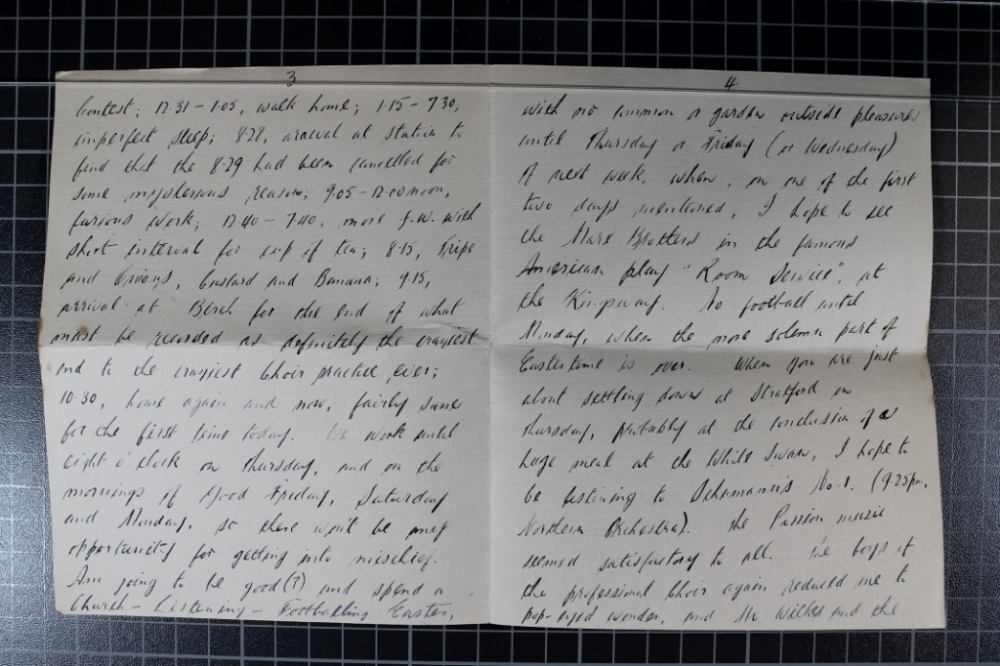 3
Contest; 12.31 – 1.05, walk home; 1.15 – 7.30,
imperfect sleep; 8.28, arrival at station to
find that the 8.29 had been cancelled for
some mysterious reason; 9.05 – 12.00 noon,
furious work; 12.40 – 7.40, more f.w. with
short interval for cup of tea; 8.15, Tripe
and Onions, Custard and Banana; 9.15,
arrival at Birch for the end of what
must be recorded as definitely the craziest
end to the craziest Choir practice, ever;
10.30, home again and now, fairly sane
for the first time today. We work until
eight o'clock on Thursday, and on the
mornings of Good Friday, Saturday
and Monday, so there won't be any
opportunity for getting into mischief.
Am going to be good (?) and spend a
Church – Listening – Footballing Easter,
4
with no common or garden outside pleasures
until Thursday or Friday (or Wednesday)
of next week, when, on one of the first
two days mentioned, I hope to see
the Marx Brothers in the famous
American play "Room Service", at
the Kingsway. No football until
Monday, when the more solemn part of
Eastertime is over. When you are just
about settling down at Stratford on
Thursday, probably at the conclusion of a
huge meal at the White Swan, I hope to
be listening to Schumann's No. 1. (9.25pm,
Northern Orchestra). The Passion music
seemed satisfactory to all. The boys of
the professional Choir again reduced me to
pop-eyed wonder, and Mr Wilkes and the